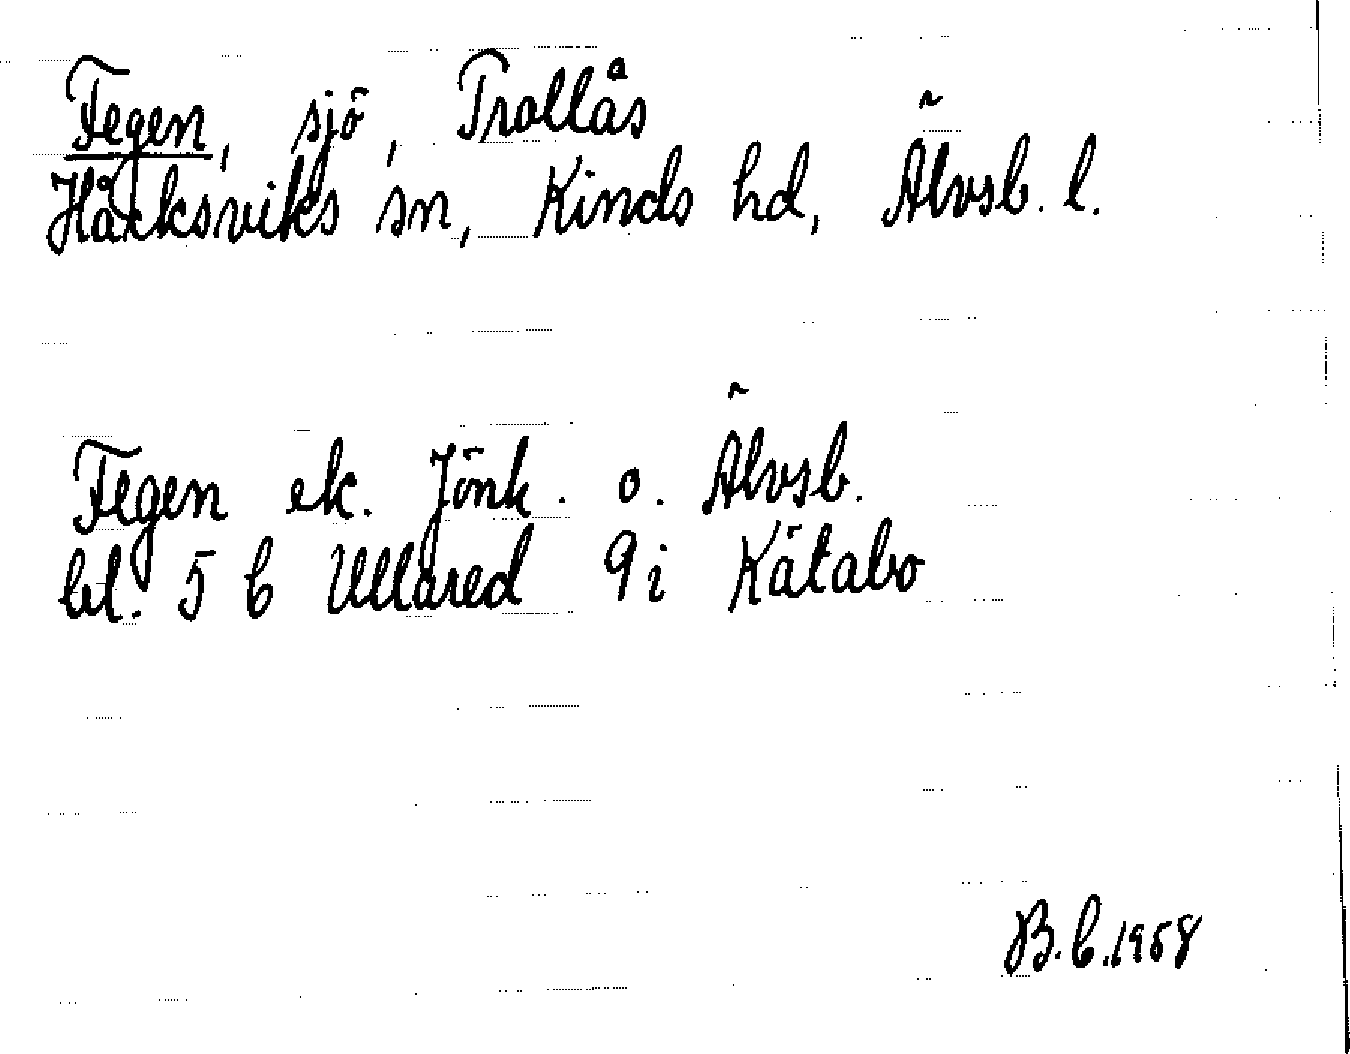 Fegen, sjö, Trollås
Håcksviks sn, Kinds hd, Älvsb. l.
Fegen ek. Jönk. o. Älvsb.
bl. 5 C Ullared 9i Kätabo
B.C. 1958